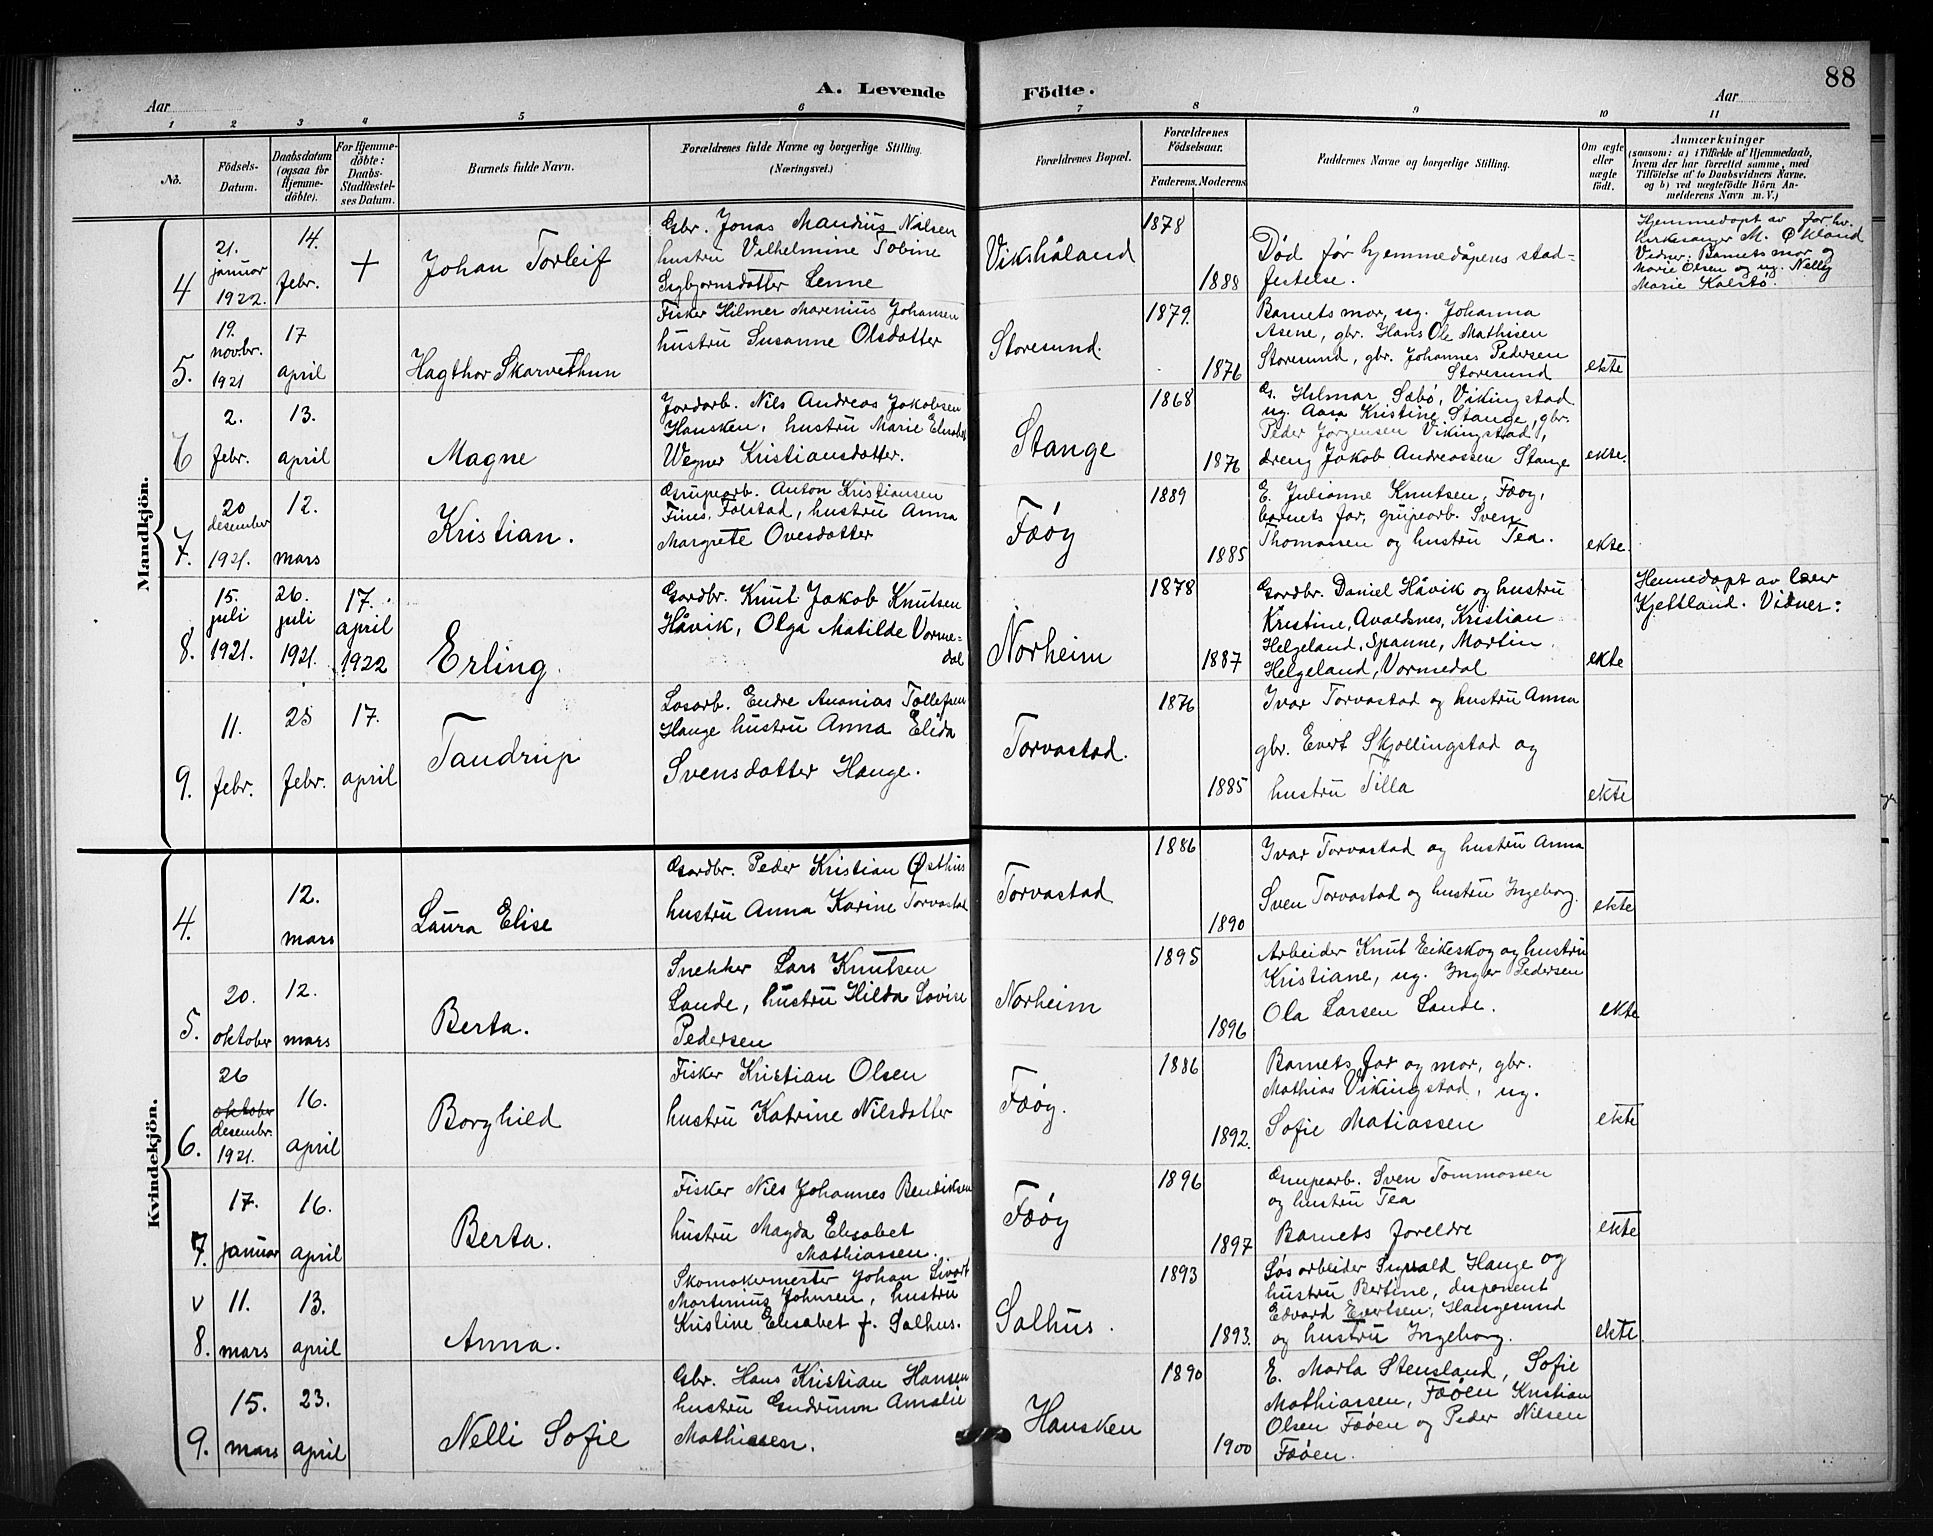 A. Levende Födte.
88
Aar
Aar
1 2 3 4 5 6 7 8 9 10 11
No.
Födsels-
Datum.
Daabsdatum
(ogsaa for
Hjemme-
döbte).
For Hjemme-
döbte:
Daabs-
Stadfæstel-
ses Datum.
Barnets fulde Navn.
Forældrenes fulde Navne og borgerlige Stilling.
(Næringsvei.)
Forældrenes Bopæl.
Forældrenes
Födselsaar.
Faderens. Moderens.
Faddernes Navne og borgerlige Stilling.
Om ægte
eller
uægte
födt.
Anmærkninger
(saasom: a) i Tilfælde af Hjemmedaab,
hvem der har forrettet samme, med
Tilföielse af to Daabsvidners Navne.
og b) ved uægtefödte Börn An-
melderens Navn m. V.)
Mandkjön.
4
21.
januar
1922.
14.
febr.
+
Johan Torleif
Gbr. Jonas Mandius Nilsen
hustru Vilhelmine Tobine
Sigbjornsdatter Lenne
Vikshåland
1878
1888
Død før hjemmedåpens stad-
festelse.
Hjemmedøpt av forhv.
Kirkesanger M. Økland
Vidner: Barnets mor og
Marie Olsen og ug. Nelly
Marie Kolstø.
5.
19.
novbr.
1921
17
april
Hagthor Skarvethun
Fisker Hilmer Marenius Johansen
hustru Susanne Olsdatter
Storesund.
1879.
1876
Barnets mor, ug. Johanna
Asene, gbr. Hans Ole Mathisen
Storesund, gbr. Johannes Pedersen
Storesund
ekte
6
2.
febr.
13.
april
Magne
Jordarb. Nils Andreas Jakobsen
Hansken, hustru Marie Elisabet
Wegner Kristiansdatter.
Stange
1868
1876
G. Hilmar Sæbø, Vikingstad
ug. Aasa Kristine Stange, gbr.
Peder Jørgensen Vikingstad,
dreng Jakob Andreassen Stange
ekte.
7.
20
desember
1921.
12.
mars
Kristian.
Grupearb. Anton Kristiansen
Fines, Følstad, hustru Anna
Margrete Ovesdatter
Føøy
1889
1885
E. Julianne Knutsen, Føoy,
barnets far, grupearb. Sven
Thomassen og hustru Tea.
ekte.
8.
15.
juli
1921.
26.
juli
1921.
17.
april
1922
Erling.
Gardbr. Knut Jakob Knutsen
Håvik, Olga Matilde Vorme-
dal
Norheim
1878
1887
Gardbr. Daniel Håvik og hustru
Kristine, Avaldsnes, Kristian
Helgeland, Spanne, Martin
Helgeland, Vormedal
ekte
Hemmedøpt av lærer
Kjetland. Vidner:
9.
11.
febr.
25
febr.
17.
april
Tandrup
Losarb. Endre Ananias Tollefsen
Hauge hustru Anna Elida
Svensdatter Hauge.
Torvastad.
1876
1885
Ivar Torvastad og hustru Anna
gbr. Evert Skjøllingstad og
hustru Tilla
ekte
Kvindekjön.
4.
12.
mars
Laura Elise
Gardbr. Peder Kristian Østhus
hustru Anna Karine Torvastad
Torvastad
1886
1890
Ivar Torvastad og hustru Anna
Sven Torvastad og hustru Ingeborg.
ekte
5.
20.
oktober
12.
mars
Berta.
Snekker Lars Knutsen
Lande, hustru Hilda Lovise
Pedersen
Norheim
1895
1896
Arbeider Knut Eikeskog og hustru
Kristiane, ug. Inger Pedersen
Ola Larsen Lande.
ekte
6.
26
oktober
desembr.
1921.
16.
april
Borghild
Fisker Kristian Olsen
hustru Katrine Nilsdatter
Føøy.
1886
1892.
Barnets far og mor, gbr.
Mathias Vikingstad, ug.
Sofie Matiassen
ekte
7.
17.
januar
16.
april
Berta.
Fisker Nils Johannes Bendiksen
hustru Magda Elisabet
Mathiassen.
Føøy
1896
1897
Grupearb. Sven Tommassen
og hustru Tea
Barnets foreldre
ekte
v
8.
11.
mars
13.
april
Anna.
Skomakermester Johan Sivart
Martinius Johnsen, hustru
Kristine Elisabet f. Salhus.
Salhus.
1893
1893.
Løsarbeider Sigvald Hauge og
hustru Bertine, disponent
Edvard Evertsen, Haugesund
og hustru Ingeborg.
ekte
9.
15.
mars
23.
april
Nelli Sofie
Gbr. Hans Kristian Hansen
hustru Gudrunn Amalie
Mathiesen.
Hansken
1890
1900
E. Marta Stensland, Sofie
Mathiassen, Føøen Kristian
Olsen Føøen og Peder Nilsen
Føøen.